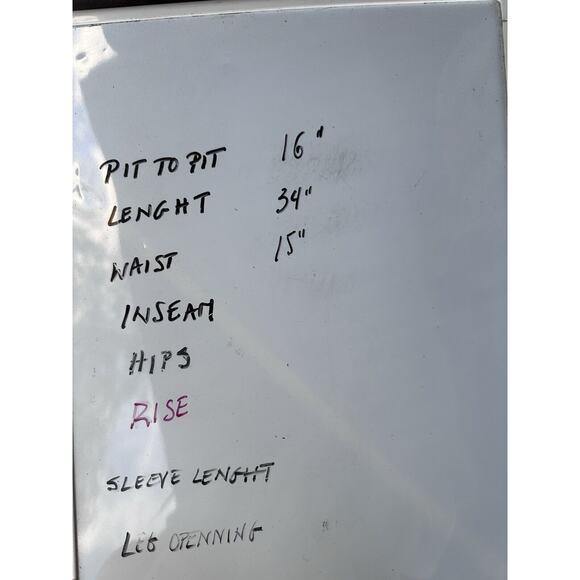 PIT TO PIT 16"
LENGHT 34"
WAIST 15"
INSEAM
HIPS
RISE
SLEEVE LENGHT
LEG OPENNING